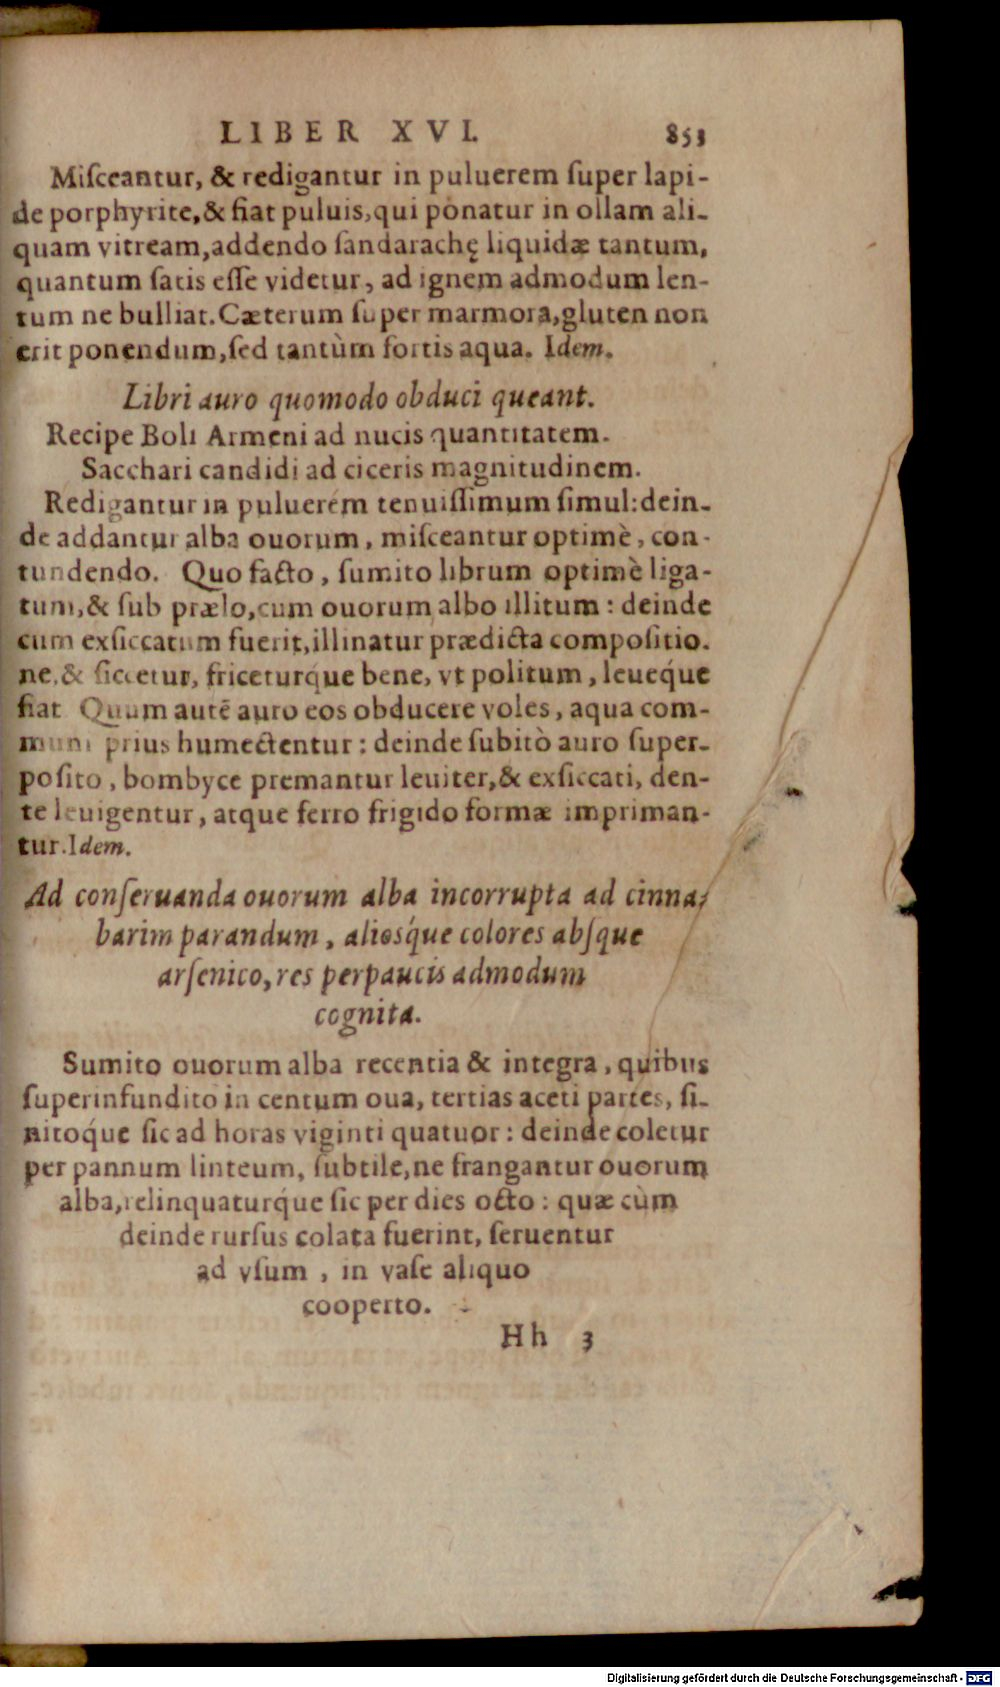 LIBER XVI. 853
Miſceantur, & redigantur in puluerem ſuper lapi-
de porphyrite,& fiat puluis,qui ponatur in ollam ali-
quam vitream,addendo ſandarachę liquidæ tantum,
quantum ſatis eſſe videtur, ad ignem admodum len-
tum ne bulliat. Cæterum ſuper marmora,gluten non
erit ponendum,ſed tantùm fortis aqua. Idem.
Libri auro quomodo obduci queant.
Recipe Boli Armeni ad nucis quantitatem.
Sacchari candidi ad ciceris magnitudinem.
Redigantur in puluerem tenuiſſimum ſimul:dein-
de addantur alba ouorum, miſceantur optimè, con-
tundendo. Quo facto, ſumito librum optimè liga-
tum,& ſub prælo,cum ouorum albo illitum : deinde
cum exſiccatum fuerit,illinatur prædicta compoſitio.
ne,& ſiccetur, friceturq́ue bene, vt politum, leueq́ue
fiat Quum autē auro eos obducere voles, aqua com-
muni prius humectentur : deinde ſubitò auro ſuper-
poſito, bombyce premantur leuiter,& exſiccati, den-
te leuigentur, atque ferro frigido formæ impriman-
tur.Idem.
Ad conſeruanda ouorum alba incorrupta ad cinna-
barim parandum, alioſq́ue colores abſque
arſenico, res perpaucis admodum
cognita.
Sumito ouorum alba recentia & integra, quibus
ſuperinfundito in centum oua, tertias aceti partes, ſi-
nitoq́ue ſic ad horas viginti quatuor : deinde coletur
per pannum linteum, ſubtile,ne frangantur ouorum
alba,relinquaturq́ue ſic per dies octo : quæ cùm
deinde rurſus colata fuerint, ſeruentur
ad vſum, in vaſe aliquo
cooperto.
Hh 3
Digitalisierung gefördert durch die Deutsche Forschungsgemeinschaft - DFG